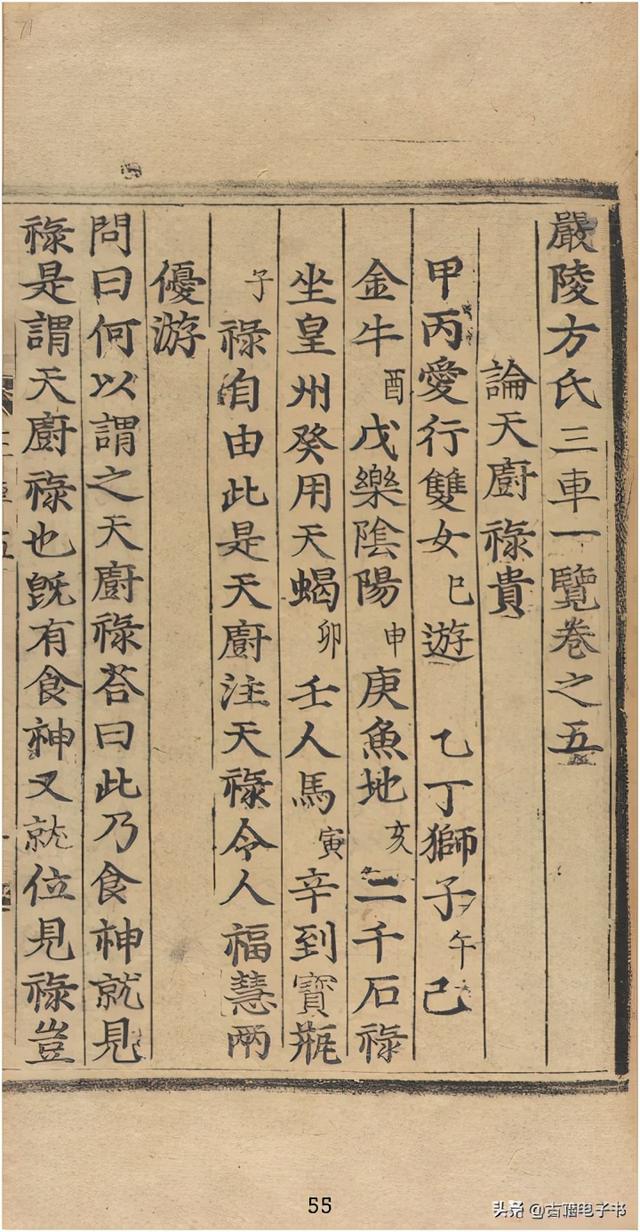 嚴陵方氏三車一覽卷之五
論天廚祿貴
甲丙愛行雙女巳遊 乙丁獅子午己
金牛酉戊樂陰陽申庚魚地亥二千石祿
坐皇州癸用天蝎卯壬人馬寅辛到寶瓶
子祿自由此是天廚注天祿令人福慧兩
優游
問曰何以謂之天廚祿荅曰此乃食神就見
祿是謂天廚祿也旣有食神又就位見祿豈
55
头条 @古籍电子书